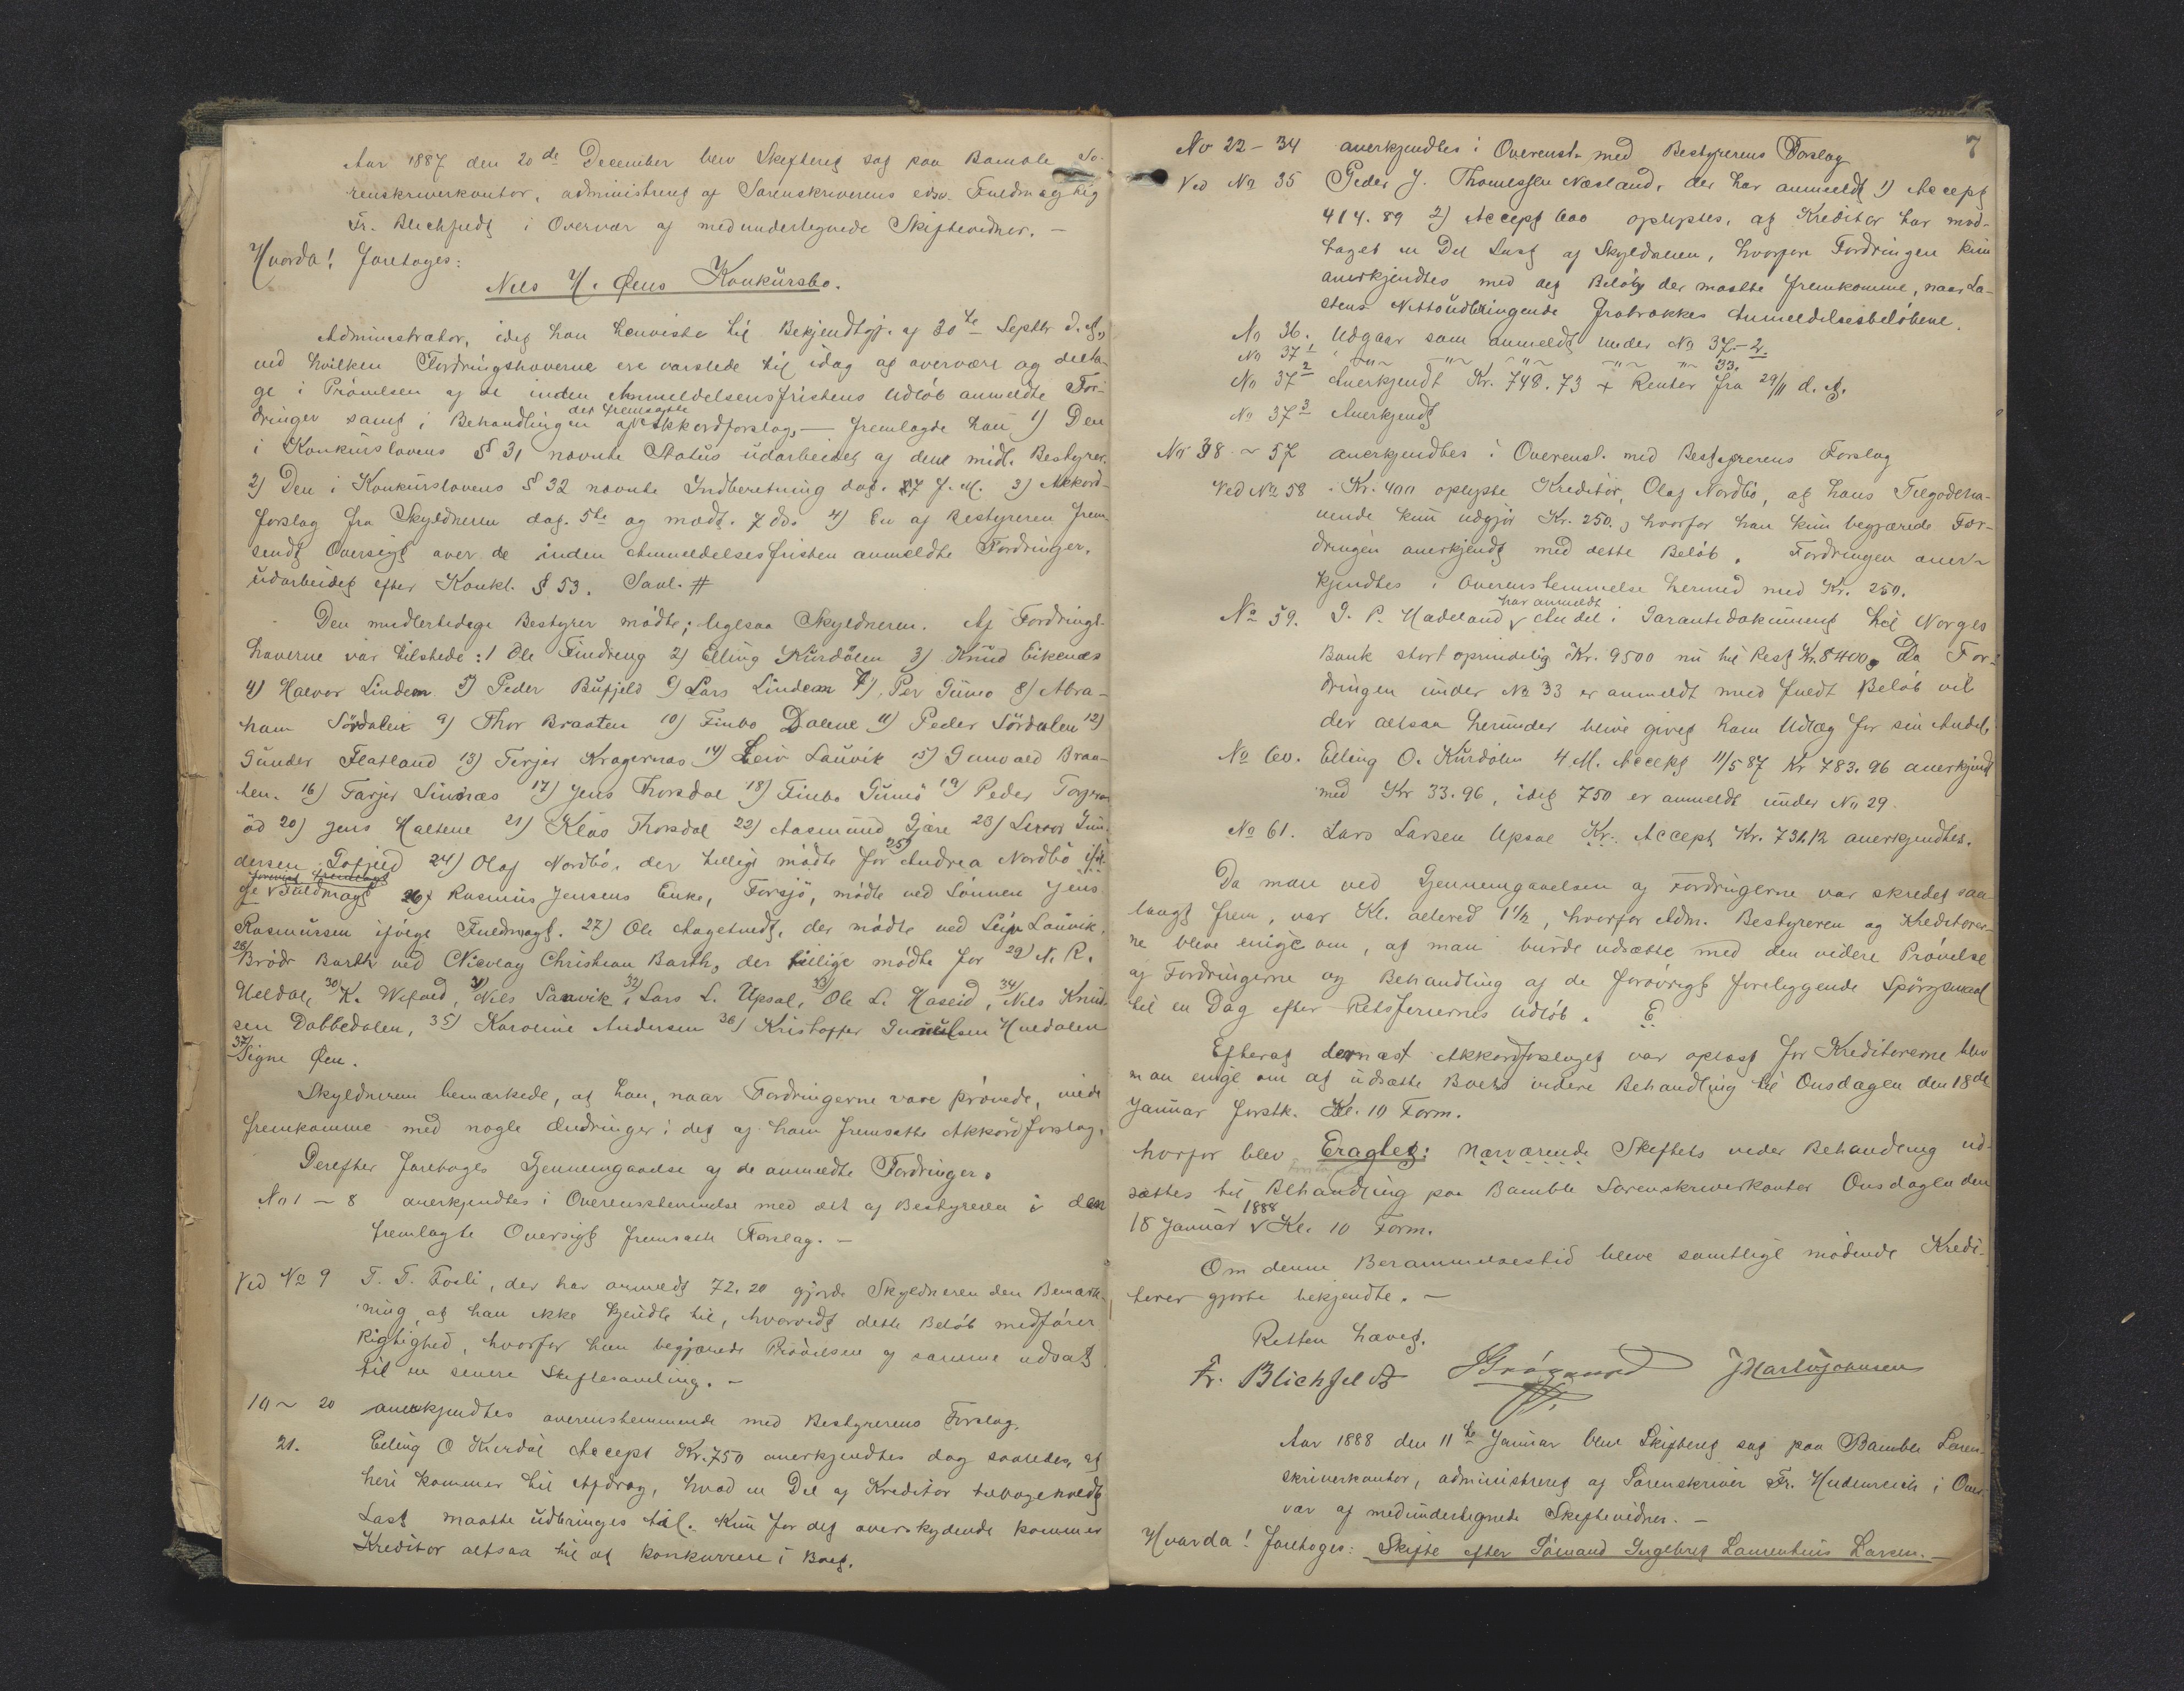 Aar 1887 den 20de December blev Skifteret sat paa Bamble So-
renskriverkontor, administreret af Sorenskriverens edsv. Fuldmægtig
Fr. Blichfeldt i Overvær af medundertegnede Skiftevidner. —
Hvorda! Foretoges:
Nils H. Øens Konkursbo.
Administrator, idet han henviste til Bekjendtgj. af 30te Septbr d. A.,
ved hvilken Fordringshaverne ere varslede til idag at overvære og delta-
ge i Prøvelsen af de inden Anmeldelsesfristens Udløb anmeldte For-
dringer samt i Behandlingen af det fremsatte Akkordforslag, — fremlagde han 1) Den
i Konkurslovens § 31 nævnte Status udarbeidet af den midl. Bestyrer.
2) Den i Konkurslovens § 32 nævnte Indberetning dat. 27 f. M. 3) Akkord-
forslag fra Skyldneren dat. 5te og modt. 7 ds. 4) En af Bestyreren frem-
sendt Oversigt over de inden Anmeldelsesfristen anmeldte Fordringer,
udarbeidet efter Konkl. § 53. Saal. #
Den midlertidige Bestyrer mødte; ligesaa Skyldneren. Af Fordrings-
haverne var tilstede: 1 Ole Findreng 2) Elling Kurdølen 3) Knud Eikenæs
4) Halvor Lindem 5) Peder Bufjeld 6) Lars Lindem 7) Per Gumø 8) Abra-
ham Sørdalen 9) Thor Braaten 10) Finbo Dalene 11) Peder Sørdalen 12)
Gunder Flatland 13) Terjer Kragernæs 14) Leiv Lauvik 15) Gunvald Braa-
ten. 16) Tarjer Lindnæs 17) Jens Thorsdal 18) Finbo Gumø 19) Peder
20) Jens Haltene 21) Klas Thorsdal 22) Aasmund Gjære 23)
dersen 24) Olaf Nordbø, der tillige mødte for 25) Andrea Nordbø iføl-
ge Fuldmagt 26) Rasmus Jensens Enke, Forsjø, mødte ved Sønnen Jens
Rasmussen ifølge Fuldmagt. 27) Ole Aagetvedt, der mødte ved Leiv Lauvik,
28) Brødr Barth ved Nicolay Christian Barth, der tillige mødte for 29) N. R.
Ueldal, 30) K. 31) Nils Sanvik, 32) Lars L. Upsal, 33) Ole L. Haseid, 34) Nils Knud-
sen Dobbedalen, 35) Karoline Andersen 36) Kristoffer Hvedalen
37) Signe Øen.
Skyldneren bemærkede, at han, naar Fordringerne vare prøvede, vilde
fremkomme med nogle Ændringer i det af ham fremsatte Akkordforslag.
Derefter foretoges Gjennemgaaelse af de anmeldte Fordringer.
No 1 – 8 anerkjendtes i Overensstemmelse med det af Bestyreren i den
fremlagte Oversigt fremsatte Forslag. —
Ved No 9 T. T. Fosli, der har anmeldt 72.20 gjorde Skyldneren den Bemærk-
ning, at han ikke kjendte til, hvorvidt dette Beløb medfører
Rigtighed, hvorfor han begjærede Prøvelsen af samme udsat
til en senere Skiftesamling. —
10 ~ 20 anerkjendtes overensstemmende med Bestyrerens Forslag.
21. Elling O Kurdøl Accept Kr. 750 anerkjendtes dog saaledes, at
heri kommer til Afdrag, hvad en Del af Kreditor tilbageholdt
Last maatte udbringes til. Kun for det overskydende kommer
Kreditor altsaa til at konkurrere i Boet.
7
No 22 – 34 anerkjendtes i Overenst. med Bestyrerens Forslag
Ved No 35 Peder J. Thomessen Næsland, der har anmeldt 1) Accept
414.89 2) Accept 600 oplystes, at Kreditor har mod-
taget en Del Last af Skyldneren, hvorfor Fordringen kun
anerkjendtes med det Beløb, der maatte fremkomme, naar La-
stens Nettoudbringende fratrækkes Anmeldelsesbeløbene.
No 36. Udgaar som anmeldt under No 37-2.
No 37 1 " — " — " — " — " 33.
No 37 2 Anerkjendt Kr. 748.73 + Renter fra 29/11 d. A.
No 37 3 Anerkjendt
No 38 ~ 57 anerkjendtes i Overenst. med Bestyrerens Forslag
Ved No 58 . Kr. 400 oplyste Kreditor, Olaf Nordbø, at hans Tilgodeha-
vende kun udgjør Kr. 250, hvorfor han kun begjærede For-
dringen anerkjendt med dette Beløb. Fordringen aner-
kjendtes i Overensstemmelse hermed med Kr. 250.
No 59. G. P. Hadeland har anmeldt Andel i Garantidokument til Norges
Bank stort oprindelig Kr. 9500 nu til Rest Kr. 8400. Da For-
dringen under No 33 er anmeldt med fuldt Beløb vil
der altsaa herunder blive givet ham Udlæg for sin Andel.
No 60. Elling O. Kurdølen 4 M. Accept 11/5 87 Kr 783.96 anerkjendt
med Kr 33.96, idet 750 er anmeldt under No 29.
No 61. Lars Larsen Upsal Kr. Accept Kr. 731.12 anerkjendtes.
Da man ved Gjennemgaaelsen af Fordringerne var skredet saa
langt frem, var Kl. allered 1 1/2, hvorfor Adm. Bestyreren og Kreditorer-
ne bleve enige om, at man burde udsætte med den videre Prøvelse
af Fordringerne og Behandling af de forøvrigt foreliggende Spørgsmaal
til en Dag efter Retsferiernes Udløb. E
Efterat dernæst Akkordforslaget var oplæst for Kreditorerne blev
man enige om at udsætte Boets videre Behandling til Onsdagen den 18de
Januar førstk. Kl. 10 Form.
hvorfor blev Eragtet: Nærværende Skiftets videre Behandling ud-
sættes til Behandling paa Bamble Sorenskriverkontor Onsdagen den
18 Januar 1888 Kl. 10 Form.
Om denne Berammelsestid bleve samtlige mødende Kredi-
torer gjorte bekjendte. —
Retten hævet.
Fr. Blichfeldt
Aar 1888 den 11te Januar blev Skifteret sat paa Bamble Soren-
skriverkontor, administreret af Sorenskriver Fr. i Over-
vær af medundertegnede Skiftevidner. —
Hvorda! Foretoges: Skifte efter Sømand Ingebret Laurentius Larsen. —